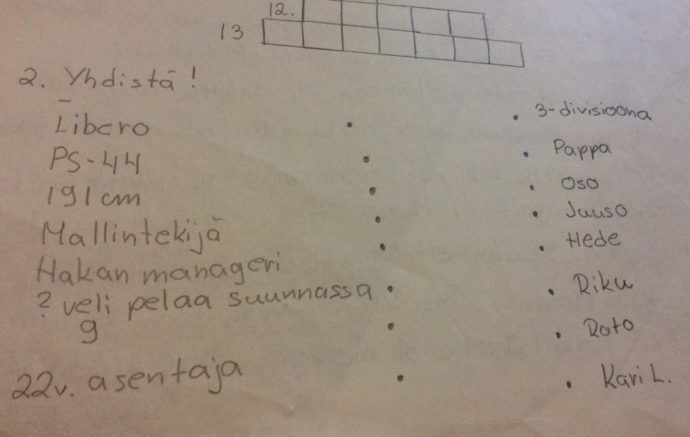 12.
13
2. Yhdistä!
Libero
3-divisioona
PS-44
Pappa
191cm
Oso
Mallintekijä
Juuso
Hakan manageri
Hede
? veli pelaa suunnassa
Riku
9
Roto
22v. asentaja
Kari L.